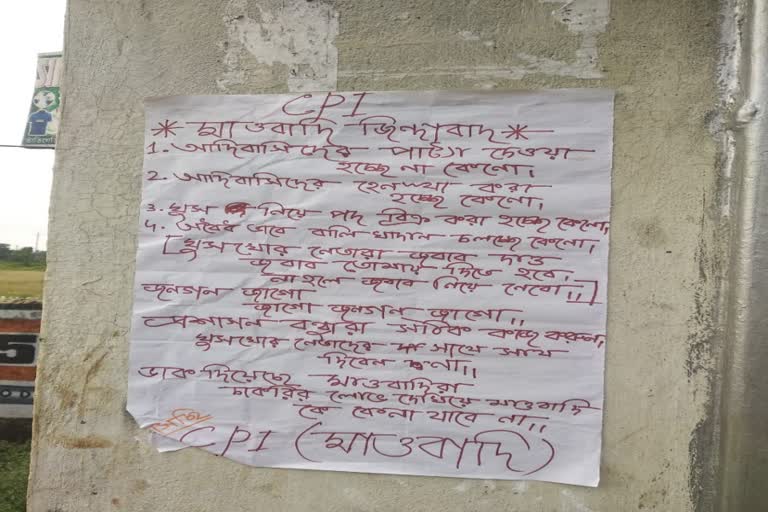 CPI
* মাওবাদি জিন্দাবাদ *
1. আদিবাসিদের পাট্টা দেওয়া
হচ্ছে না কেনো।
2. আদিবাসিদের হেনস্থা করা
হচ্ছে কেনো।
3. ঘুস নিয়ে পদ বিক্রি করা হচ্ছে কেনো।
4. অবৈধ ভাবে বালি খাদান চলছে কেনো।
[ঘুসখোর নেতারা জবাব দাও
জবাব তোমায় দিতে হবে।
না হলে জবাব নিয়ে নেবো।।]
জনগন জাগো
জাগো জনগন জাগো।।
প্রশাসন বন্ধুরা সঠিক কাজ করুন,
ঘুসখোর নেতাদের সাথে সাথ
দিবেন না।।
ডাক দিয়েছে মাওবাদিরা
চাকরির লোভ দেখিয়ে মাওবাদি
কে কেনা যাবে না।।
CPI (মাওবাদি)